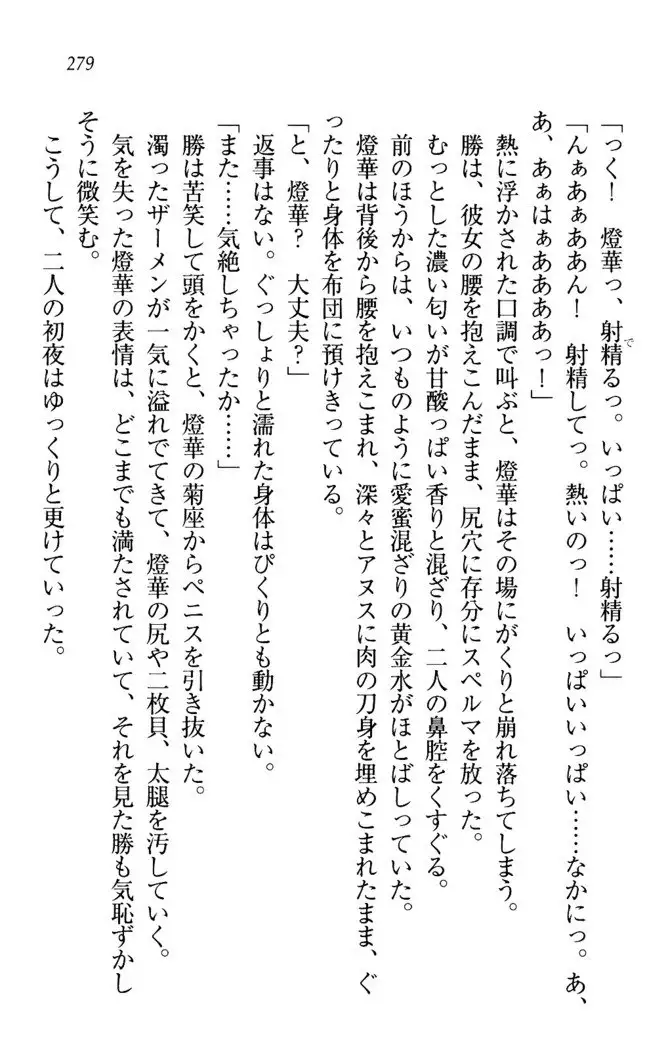 279
「っく！　燈華っ、射精るっ。いっぱい……射精るっ」
で
「んぁあぁああん！　射精してっ。熱いのっ！　いっぱいいっぱい……なかにっ。あ、
あ、あぁはぁああああっ！」
熱に浮かされた口調で叫ぶと、燈華はその場にがくりと崩れ落ちてしまう。
勝は、彼女の腰を抱えこんだまま、尻穴に存分にスペルマを放った。
むっとした濃い匂いが甘酸っぱい香りと混ざり、二人の鼻腔をくすぐる。
前のほうからは、いつものように愛蜜混ざりの黄金水がほとばしっていた。
燈華は背後から腰を抱えこまれ、深々とアヌスに肉の刀身を埋めこまれたまま、ぐ
ったりと身体を布団に預けきっている。
「と、燈華？　大丈夫？」
返事はない。ぐっしょりと濡れた身体はぴくりとも動かない。
「また……気絶しちゃったか……」
勝は苦笑して頭をかくと、燈華の菊座からペニスを引き抜いた。
濁ったザーメンが一気に溢れでてきて、燈華の尻や二枚貝、太腿を汚していく。
気を失った燈華の表情は、どこまでも満たされていて、それを見た勝も気恥ずかし
そうに微笑む。
こうして、二人の初夜はゆっくりと更けていった。